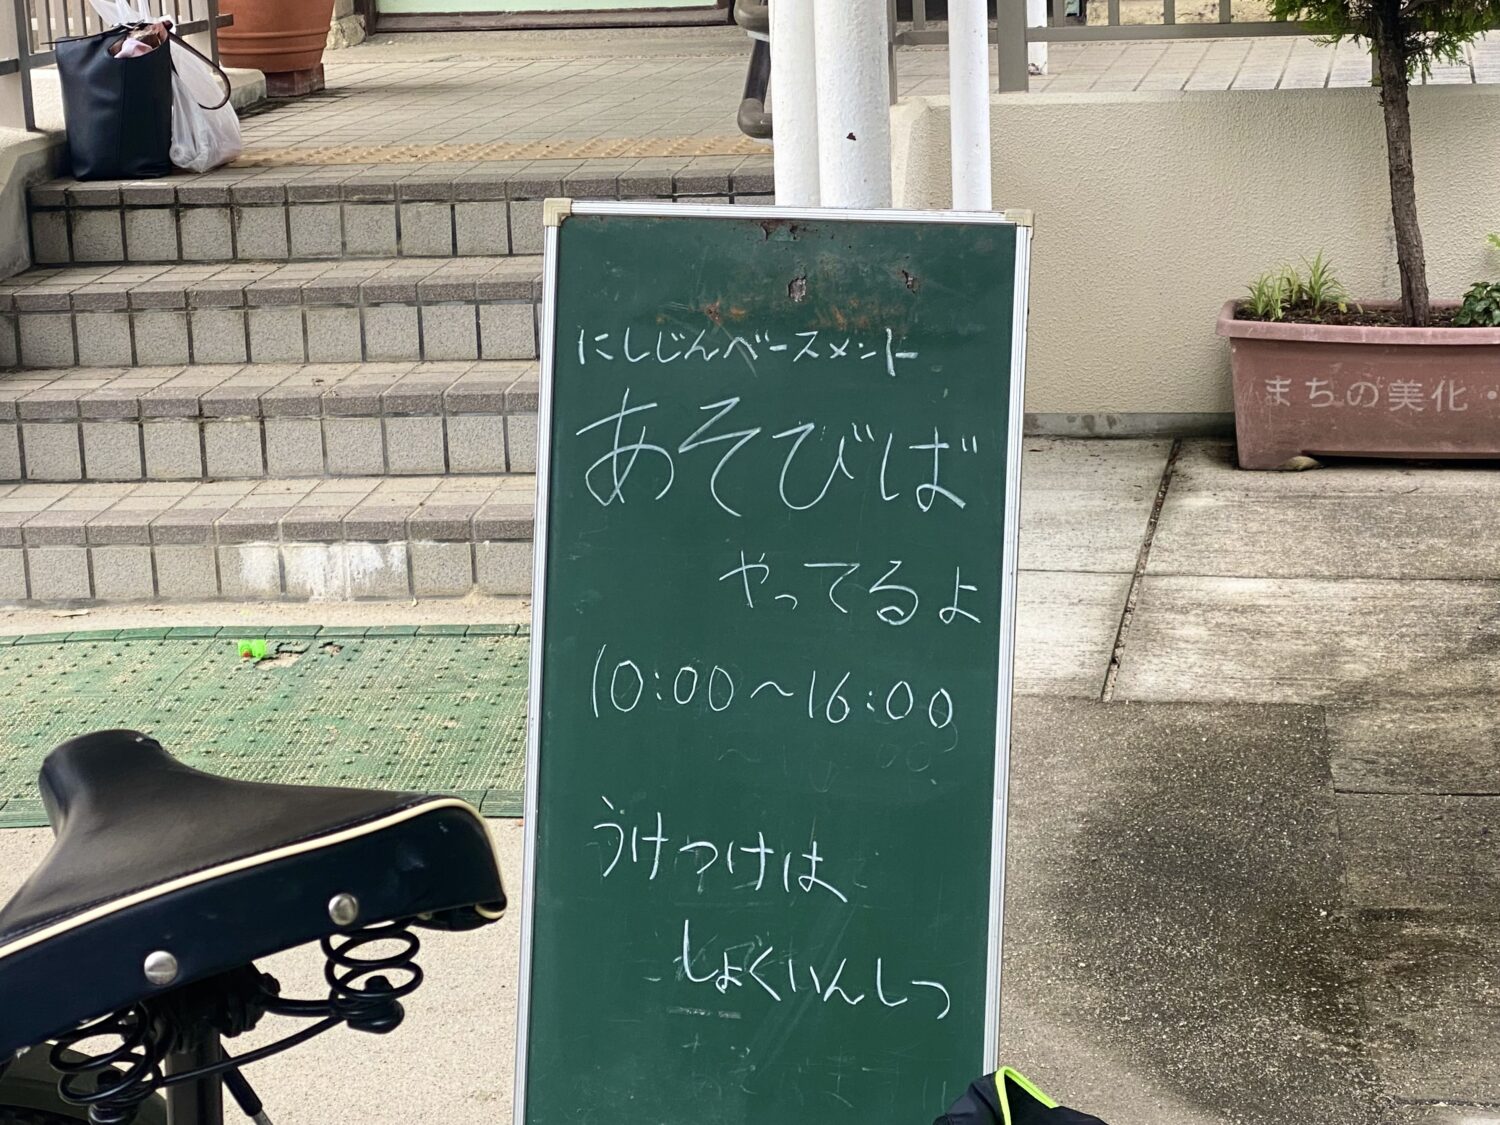 にしじんベースメント
あそびば
やってるよ
10:00～16:00
うけつけは
しょくいんしつ
まちの美化・